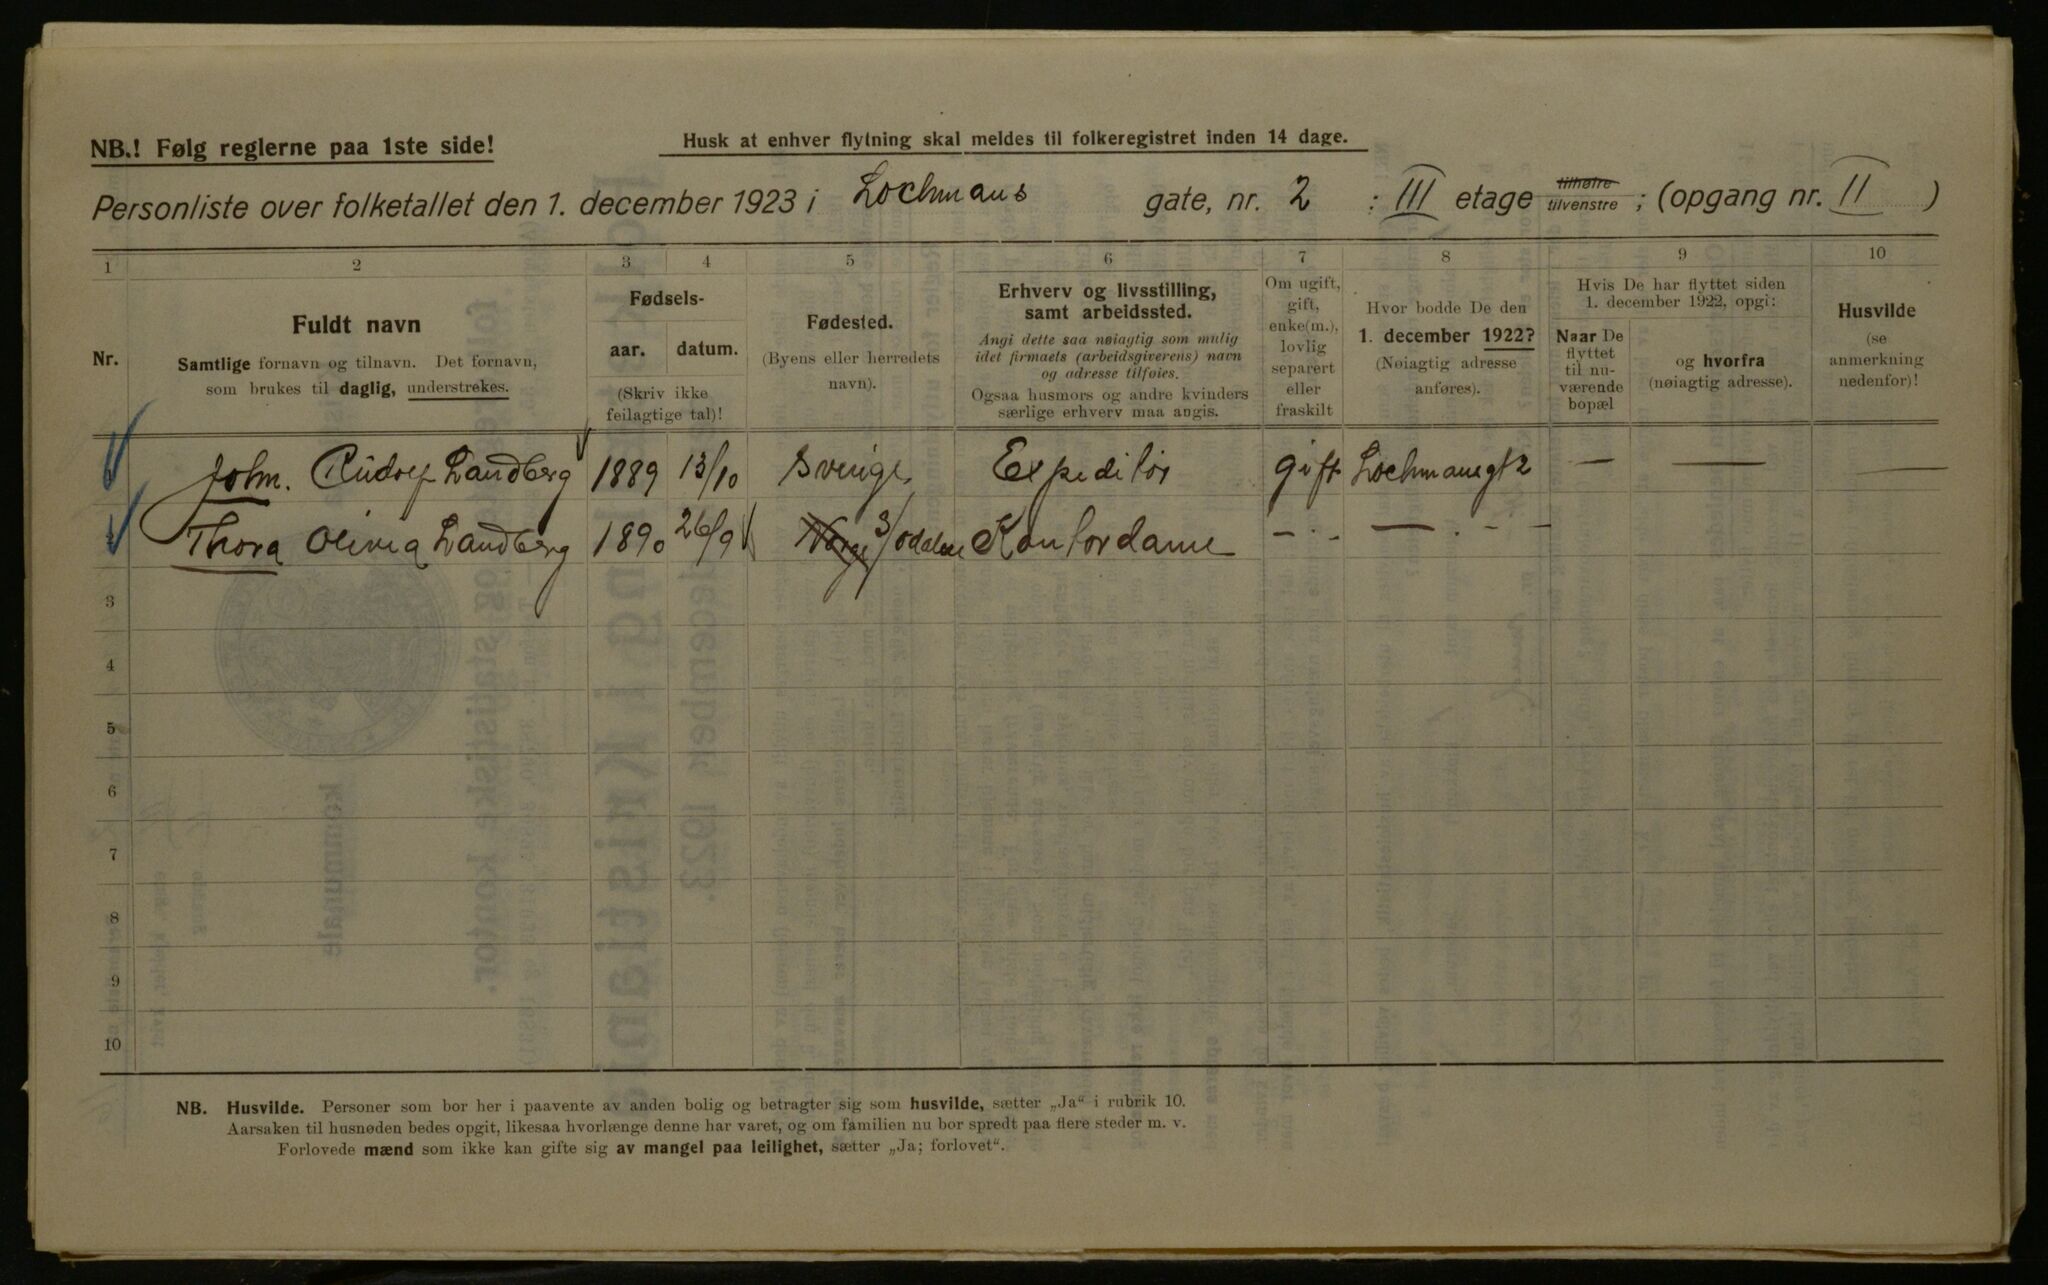 NB.! Følg reglerne paa 1ste side!
Husk at enhver flytning skal meldes til folkeregistret inden 14 dage.
Personliste over folketallet den 1. december 1923 i Lochmans gate, nr. 2 : III etage tilhøire tilvenstre ; (opgang nr. II )
1 2 3 4 5 6 7 8 9 10
Nr.
Fuldt navn
Samtlige fornavn og tilnavn. Det fornavn,
som brukes til daglig, understrekes.
Fødsels-
aar. datum.
(Skriv ikke
feilagtige tal)!
Fødested.
(Byens eller herredets
navn).
Erhverv og livsstilling,
samt arbeidssted.
Angi dette saa nøiagtig som mulig
idet firmaets (arbeidsgiverens) navn
og adresse tilføies.
Ogsaa husmors og andre kvinders
særlige erhverv maa angis.
Om ugift,
gift,
enke(m.),
lovlig
separert
eller
fraskilt
Hvor bodde De den
1. december 1922?
(Nøiagtig adresse
anføres).
Hvis De har flyttet siden
1. december 1922, opgi:
Naar De
flyttet
til nu-
værende
bopæl
og hvorfra
(nøiagtig adresse).
Husvilde
(se
anmerkning
nedenfor)!
John. Rudolf Landberg 1889 13/10 Sverige Expeditør gift Lochmansgt 2 — — —
Thora Olivia Landberg 1890 26/9 Norge Odalen Kontordame - . - — . - -
3
4
5
6
7
8
9
10
NB. Husvilde. Personer som bor her i paavente av anden bolig og betragter sig som husvilde, sætter „Ja“ i rubrik 10.
Aarsaken til husnøden bedes opgit, likesaa hvorlænge denne har varet, og om familien nu bor spredt paa flere steder m. v.
Forlovede mænd som ikke kan gifte sig av mangel paa leilighet, sætter „Ja; forlovet“.